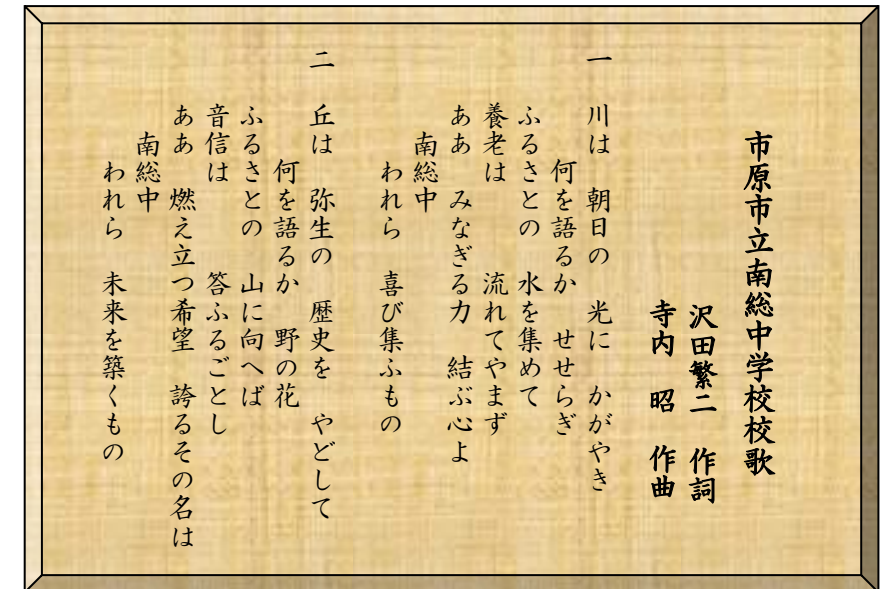 市原市立南総中学校校歌
沢田繁二 作詞
寺内 昭 作曲
一 川は 朝日の 光に かがやき
何を語るか せせらぎ
ふるさとの 水を集めて
養老は 流れてやまず
ああ みなぎる力 結ぶ心よ
南総中
われら 喜び集ふもの
二 丘は 弥生の 歴史を やどして
何を語るか 野の花
ふるさとの 山に向へば
音信は 答ふるごとし
ああ 燃え立つ希望 誇るその名は
南総中
われら 未来を築くもの